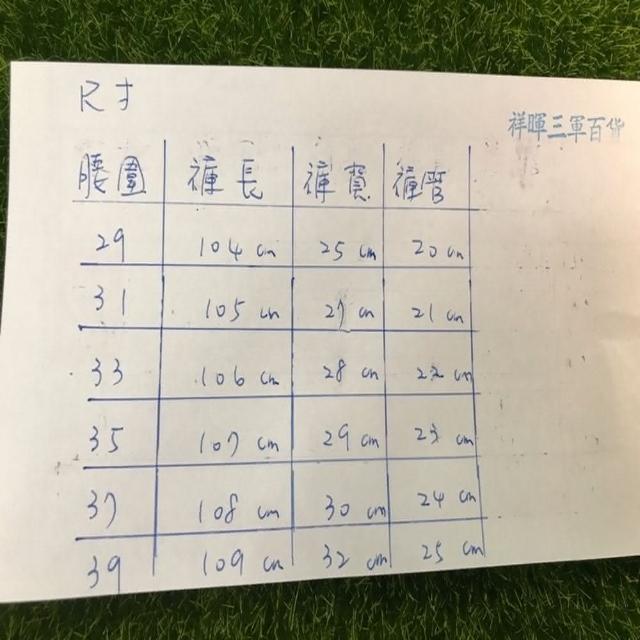 尺寸
祥暉三軍百貨
腰圍 褲長 褲寬 褲管
29 104 cm 25 cm 20 cm
31 105 cm 27 cm 21 cm
33 106 cm 28 cm 22 cm
35 107 cm 29 cm 23 cm
37 108 cm 30 cm 24 cm
39 109 cm 32 cm 25 cm